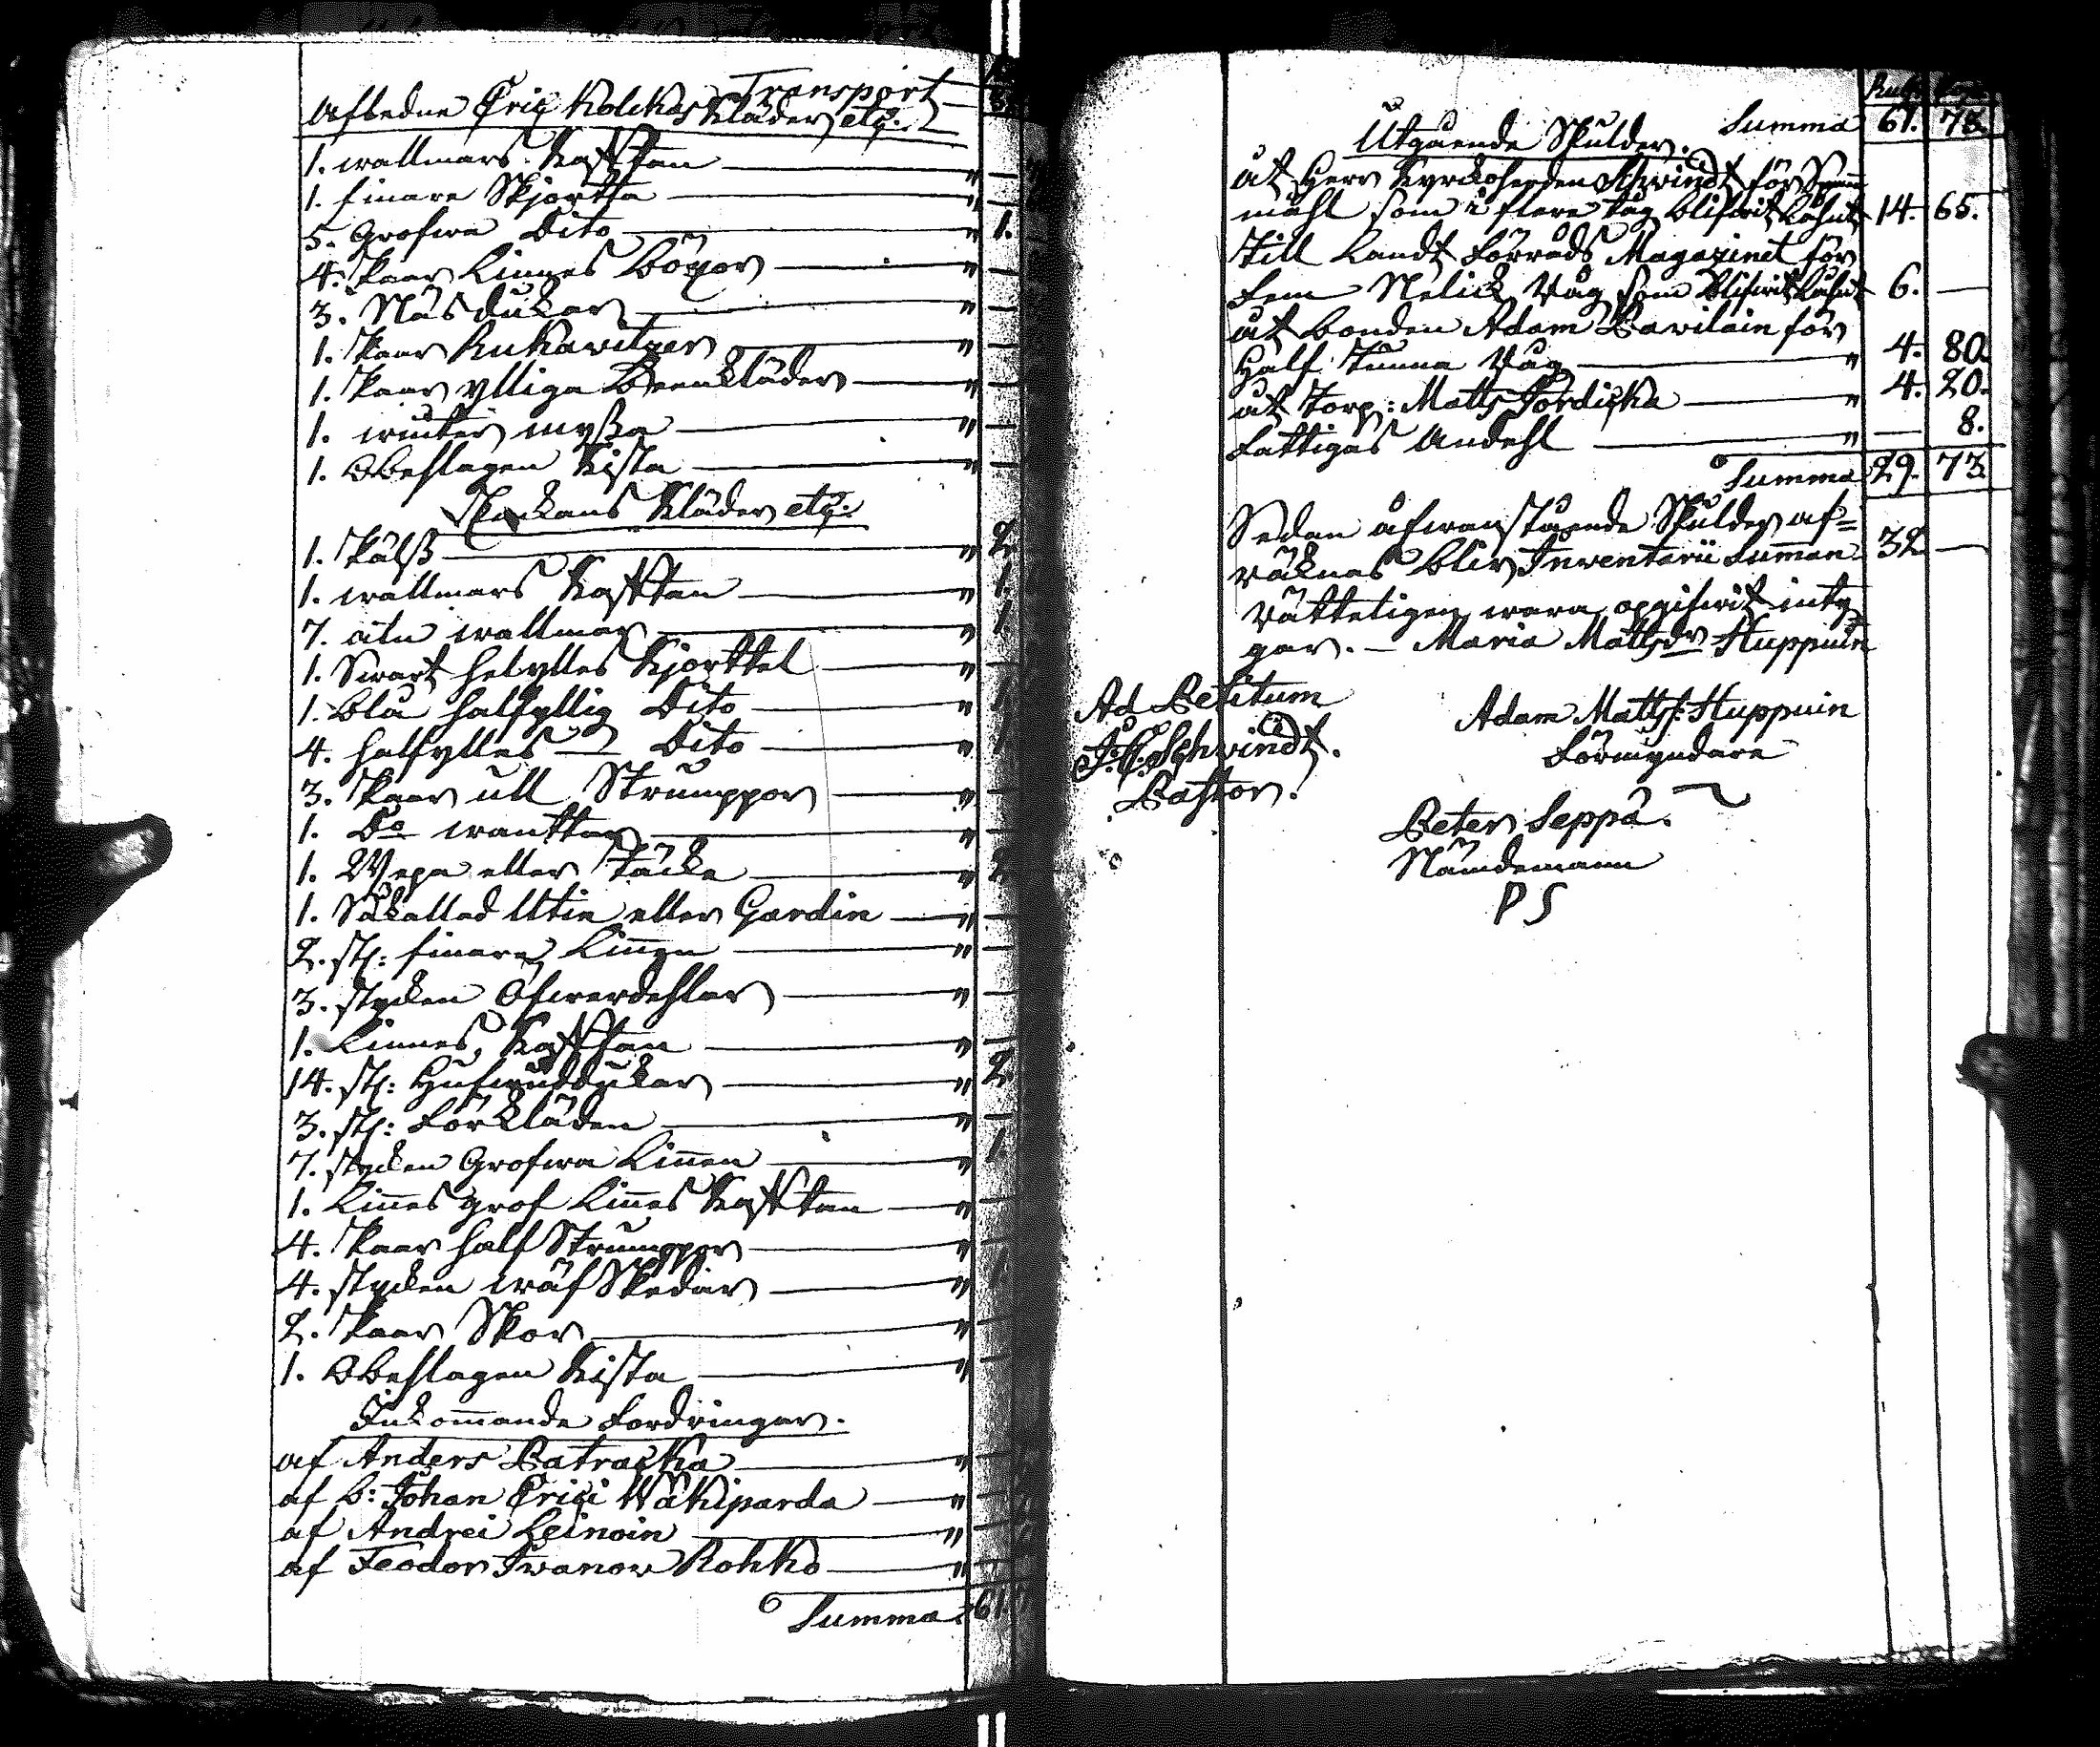 Transport
Afledne Eric Kolckas Kläder etc:
1. wallmars Kafftan — "
1. finare Skjortta — "
5. Grofwa Dito — " 1.
4. Paar Linnes Böxor — "
3. Näsdukar — "
1. Paar Rukawitzer — "
1. Paar ylliga Beenkläder — "
1. winter myßa — "
1. Obeslagen Kista — "
Kläder etc:
1. Pälß — " 2.
1. wallmars Kafftan — " 1.
7. aln wallmar — " 1.
1. Swart helylles Kjorttel — "
1. blå halfyllig Dito — "
4. halfylles — Dito — "
3. Paar ull Strumppor — "
1. Do wanttar — "
1. Wepa eller Täcke — " 2.
1. Såkallad Utin eller Gardin — "
2. st: finare Linnen — "
3. stycken Öfwerdehlar — "
1. Linnes Kafftan — "
14. st: Hufwuddukar — " 2.
3. st: Förkläden — "
7. stycken Grofwa Linnen — " 1.
1. Linnes grof Linnes Kafftan — "
4. Paar half Strumppor — "
4. stycken wäf Skedar — "
2. Paar Skor — "
1. Obeslagen Kista — "
Inkommande Fordringar.
af Anders Patracka — "
af b: Johan Erici Wäkiparda — "
af Andrei Leinoin — "
af Feodor Iwanow Rohko — "
Summa 61.
Summa 61. 78.
Utgående Skulder.
åt Herr Kyrckoherden Schwindt för
måhl som i flere tag blifwit låhnt 14. 65.
till Landt Förråds Magazinet för
fem Råg som blifwit låhnt 6. —
åt bonden Adam Pawilain för
Half Tunna Råg — " 4. 80.
åt Torp: Matts Tordicka — " 4. 20.
Fattigas Andehl — " — 8.
Summa 29. 73.
Sedan åfwanstående Skulder af=
räknas blir Inventarii Summan 32 —
Rätteligen wara opgifwit inty
gar. — Maria Mattsdr Huppuin
Ad Petitum
J. C. Schwindt.
Pastor.
Adam Matts: Huppuin
Förmyndare
Peter Seppä.
Nämdemann
P S